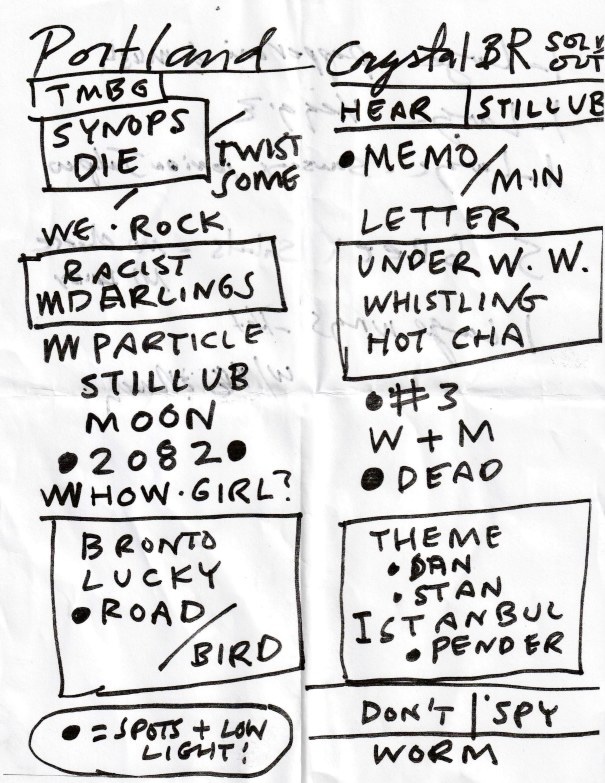 Portland Crystal BR SOLD
OUT
TMBG
SYNOPS
DIE
TWIST
SOME
WE • ROCK
RACIST
DARLINGS
PARTICLE
STILLUB
MOON
• 2082 •
HOW • GIRL?
BRONTO
LUCKY
• ROAD/
BIRD
• = SPOTS + LOW
LIGHT!
HEAR | STILLUB
• MEMO/
MIN
LETTER
UNDER W. W.
WHISTLING
HOT CHA
• #3
W + M
• DEAD
THEME
• DAN
• STAN
ISTANBUL
• PENDER
DON'T | SPY
WORM